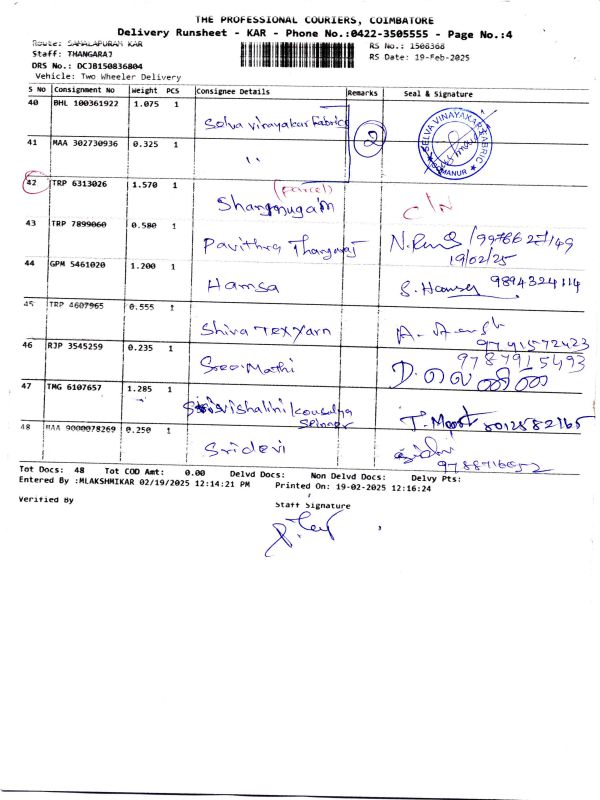 THE PROFESSIONAL COURIERS, COIMBATORE
Delivery Runsheet - KAR - Phone No.:0422-3505555 - Page No.:4
Route: SAMALAPURAM KAR
RS No.: 1508368
Staff: THANGARAJ
RS Date: 19-Feb-2025
DRS No.: DCJB150836804
Vehicle: Two Wheeler Delivery
S No Consignment No Weight PCS Consignee Details Remarks Seal & Signature
40 BHL 100361922 1.075 1 Selva vinayakar Fabrics 2
SELVA VINAYAKAR FABRIC
SOMANUR
41 MAA 302730936 0.325 1 ''
42 TRP 6313026 1.570 1 (parcel) Shanmugam C/N
43 TRP 7899060 0.580 1 Pavithra Thangaraj
19/02/25
44 GPM 5461020 1.200 1 Hamsa 9894324114
45 TRP 4607965 0.555 1 Shiva Texyarn 9791572423
46 RJP 3545259 0.235 1 Sree Mathi 9787915493
47 TMG 6107657 1.285 1 vishalini/kousalya 8012582165
48 MAA 9000078269 0.250 1 Sridevi
Tot Docs: 48 Tot COD Amt: 0.00 Delvd Docs: Non Delvd Docs: Delvy Pts:
Entered By :MLAKSHMIKAR 02/19/2025 12:14:21 PM Printed On: 19-02-2025 12:16:24
Verified By Staff Signature